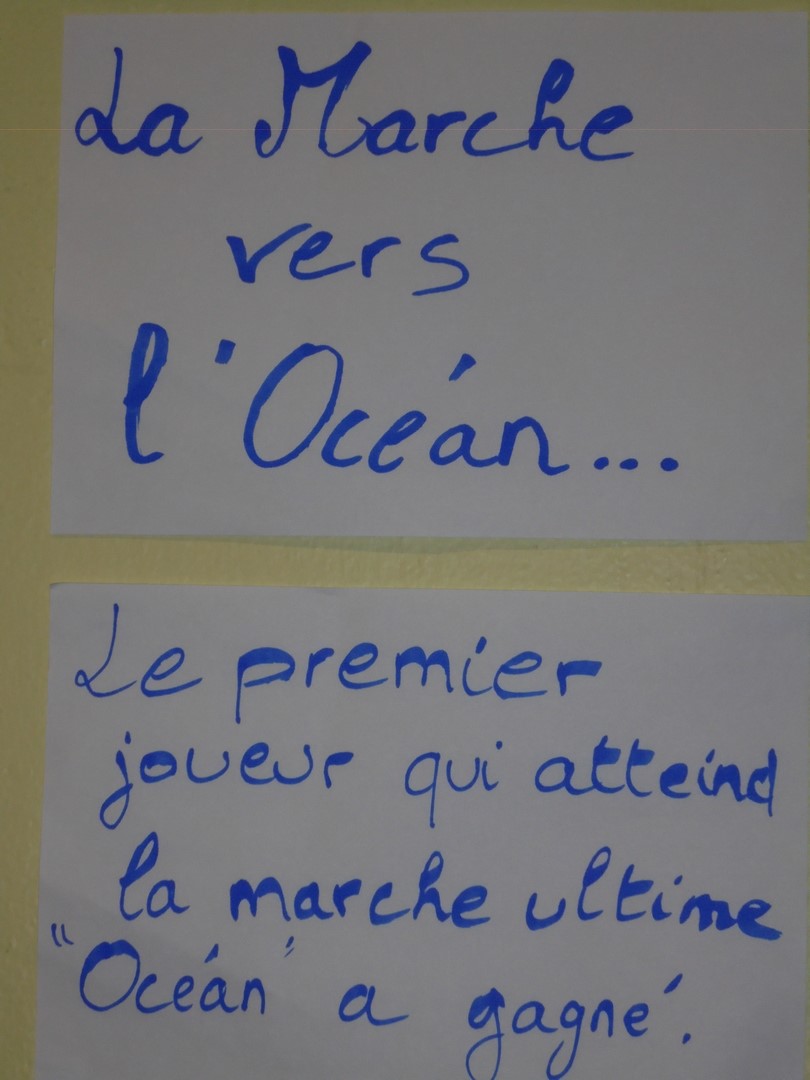 La Marche
vers
l'Océan...
Le premier
joueur qui atteind
la marche ultime
"Océan" a gagné.